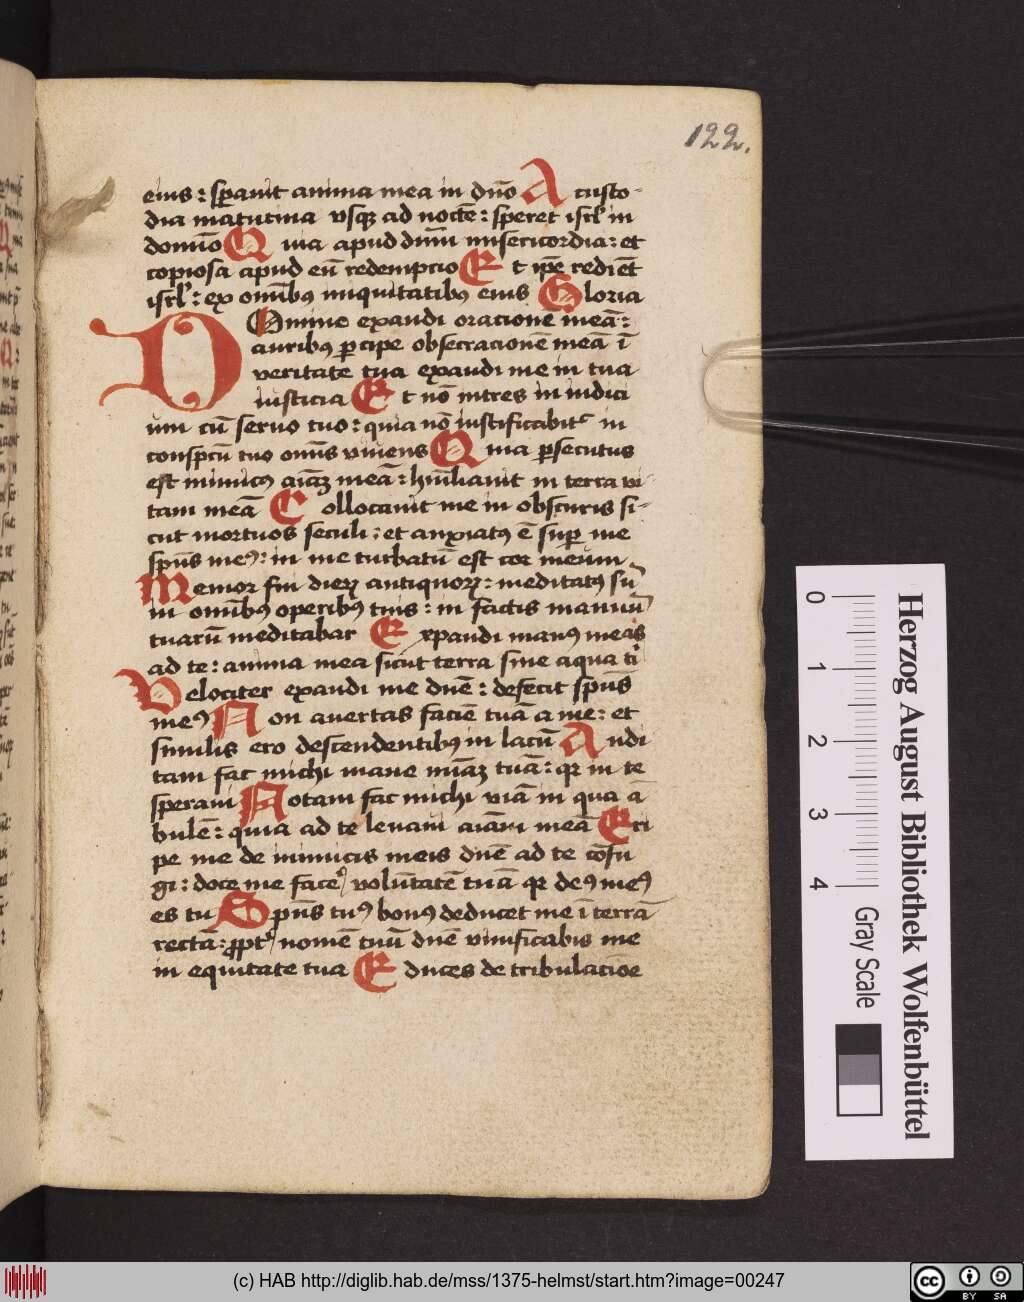 122.
eius : spauit anima mea in dn̄o A custo-
dia matutina vsqꝫ ad noctē : speret isrl̄ in
domīo Q uia apud dnm̄ misericordia : et
copiosa apud eū redempcio E t ip̄e redi&t
isrl̄ : ex om̄ibꝰ iniquitatibꝰ eius Gloria
DOmine exaudi oracionē meā :
auribꝰ ꝑcipe obsecracionē meā ī
veritate tua exaudi me in tua
iusticia E t nō intres in iudici
um cū seruo tuo : quia nō iustificabit᷑ in
conspcū tuo om̄is viuens Q uia ꝑsecutus
est inimicꝰ aīaꝫ meā : hūiliauit in terra vi-
tam meā C ollocauit me in obscuris si-
cut mortuos seculi : et anxiatꝰ ē suꝑ me
spūs meꝰ : in me turbatū est cor meum
Memor fui dieꝝ antiquoꝝ : meditatꝰ sū
in om̄ibꝰ operibꝰ tuis : in factis manuū
tuarū meditabar E xpandi manꝰ meas
ad te : anima mea sicut terra sine aqua ti
Velociter exaudi me dn̄e : defecit spūs
meꝰ N on auertas faciē tuā a me : et
similis ero descendentibꝰ in lacū A udi
tam fac michi mane mīaꝫ tuā : qꝛ in te
speraui Notam fac michi viā in qua a
bulē : quia ad te leuaui aīam meā Eri
pe me de inimicis meis dn̄e ad te cōfu
gi : doce me facē voluntatē tuā qꝛ deꝰ meꝰ
es tu Spūs tuꝰ bonꝰ deducet me ī terrā
rectā : ꝓpt᷑ nomē tuū dn̄e viuificabis me
in equitate tua E duces de tribulacioe
0 1 2 3 4
Gray Scale
Herzog August Bibliothek Wolfenbüttel
(c) HAB http://diglib.hab.de/mss/1375-helmst/start.htm?image=00247
cc BY SA